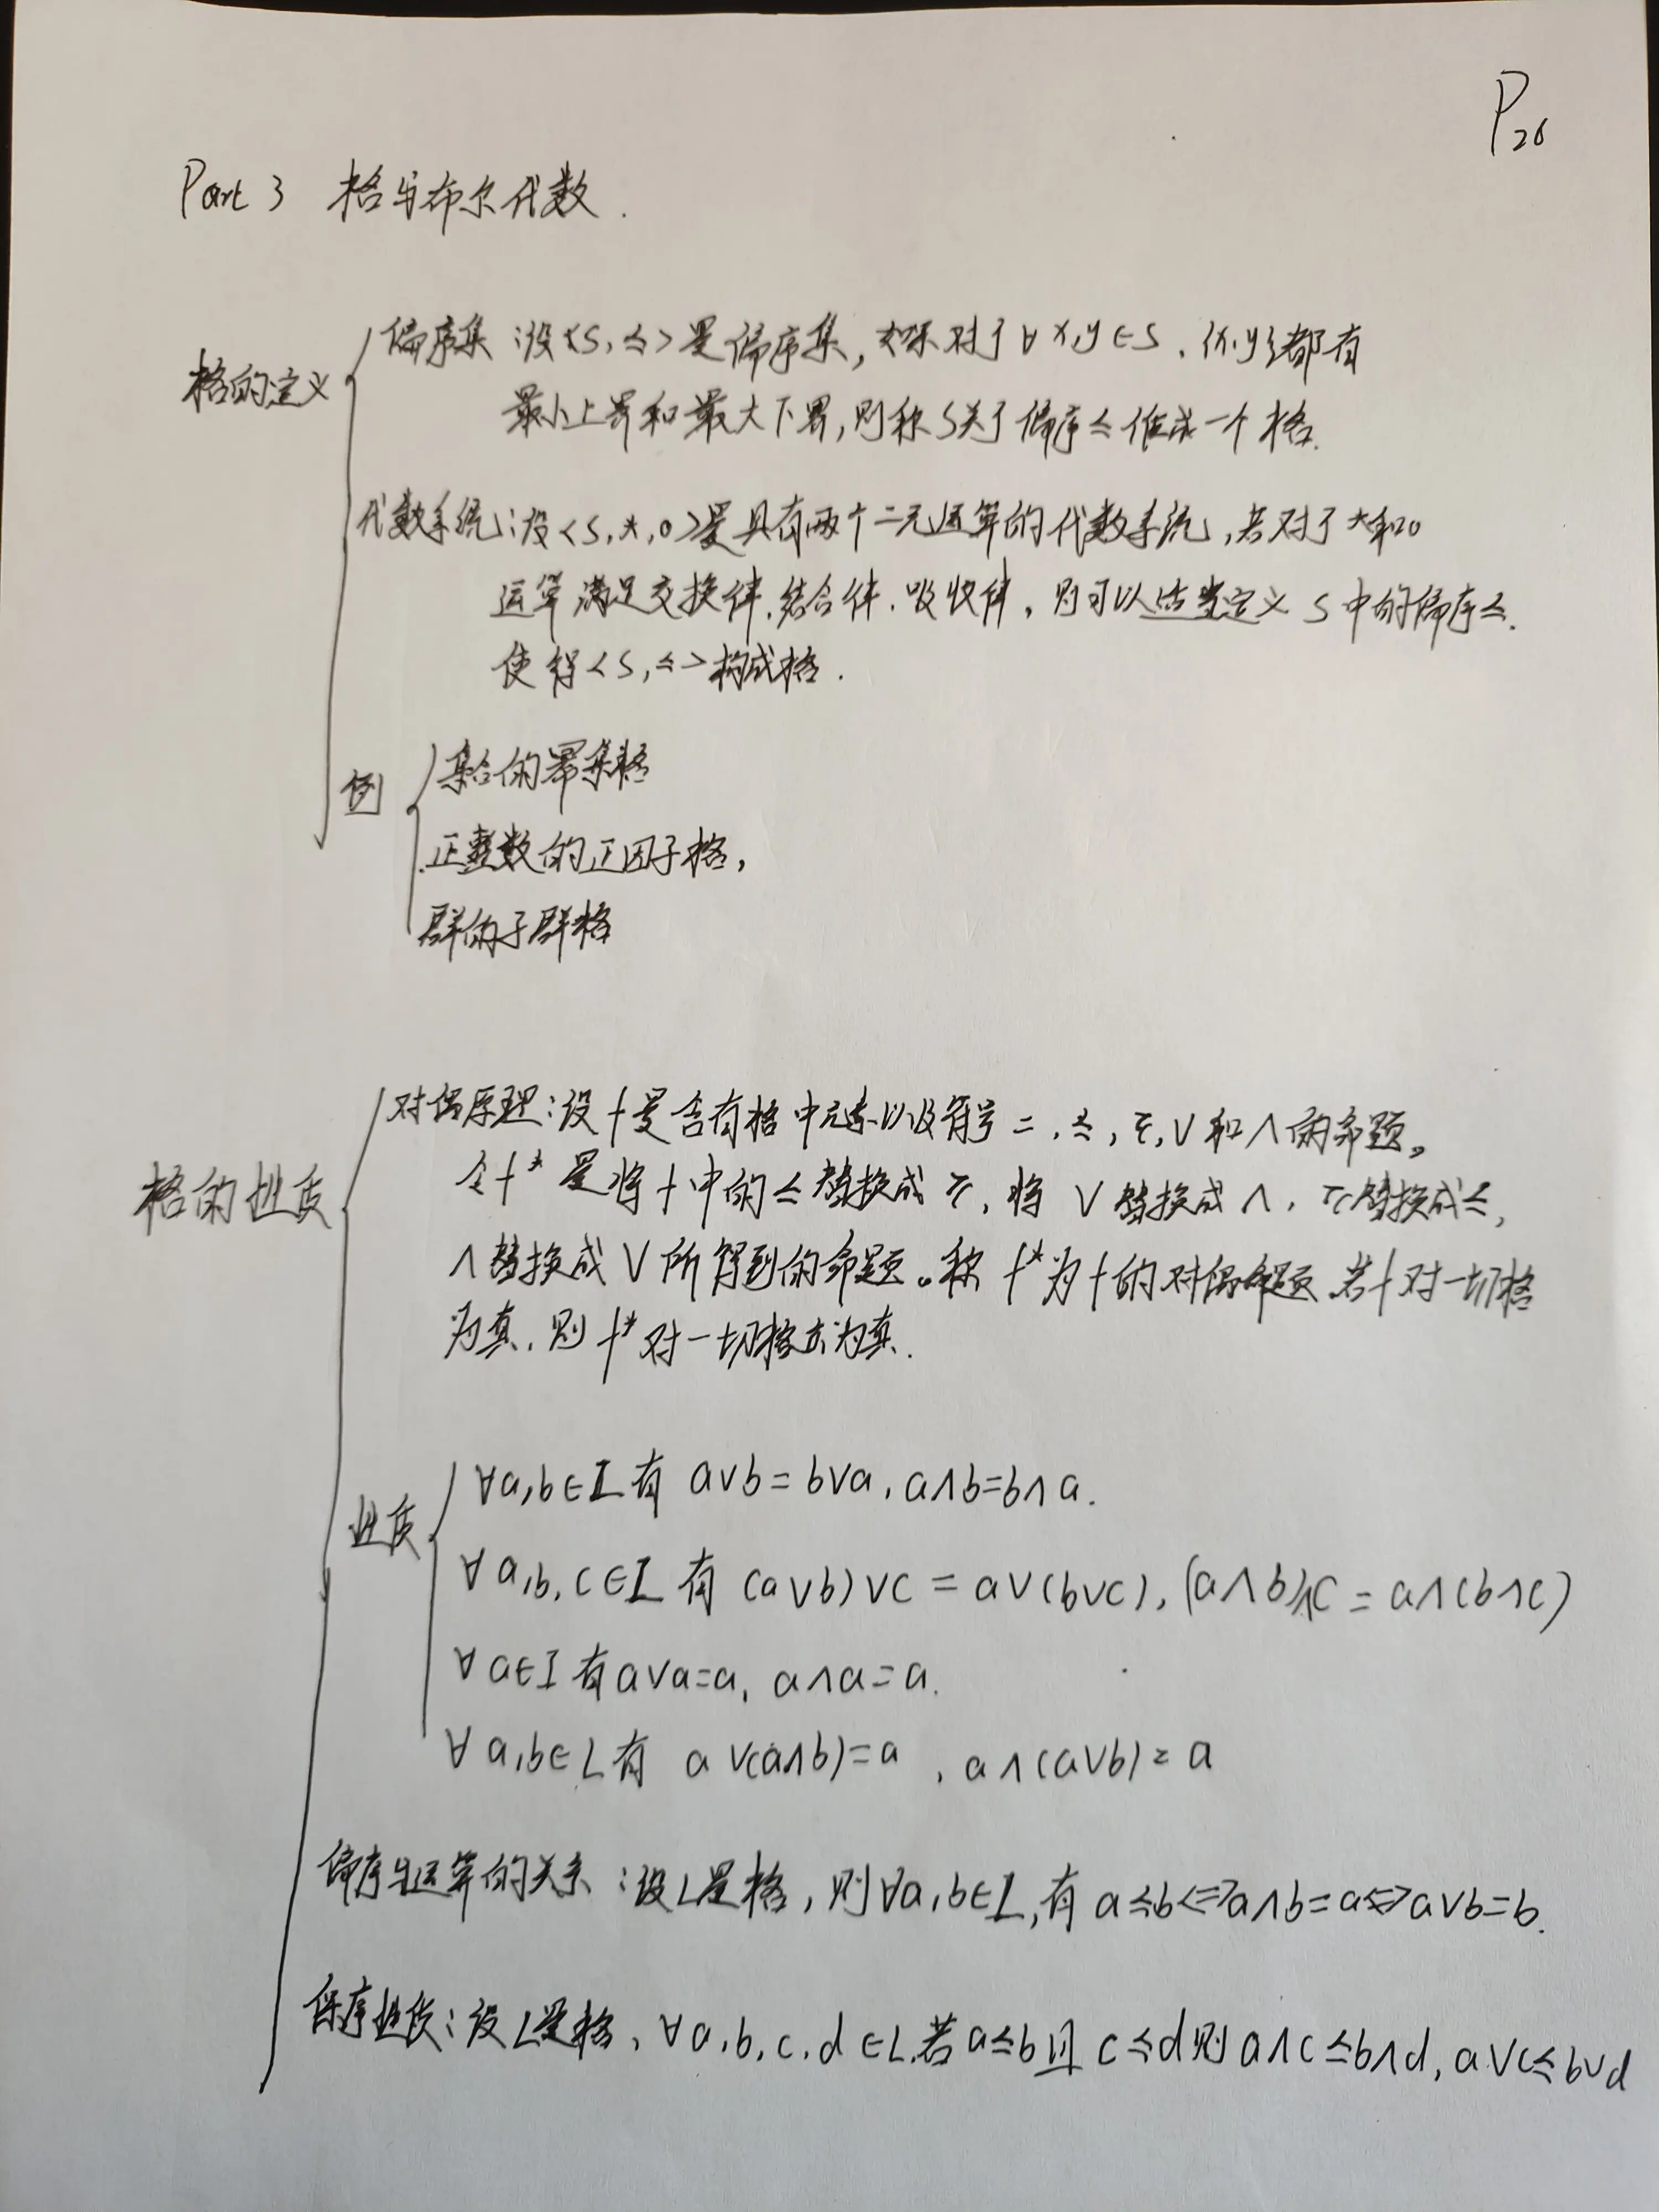 P26
Part 3 格与布尔代数.
格的定义
偏序集:设<S,≤>是偏序集,如果对于∀x,y∈S,{x,y}都有
最小上界和最大下界,则称S关于偏序≤作成一个格.
代数系统:设<S,*,o>是具有两个二元运算的代数系统,若对于*和o
运算满足交换律.结合律.吸收律,则可以适当定义S中的偏序≤.
使得<S,≤>构成格.
例
集合的幂集格
正整数的正因子格,
群的子群格
格的性质
对偶原理:设f是含有格中元素以及符号=,≤,≥,∨和∧的命题。
令f*是将f中的≤替换成≥,将∨替换成∧,≥替换成≤,
∧替换成∨所得到的命题。称f*为f的对偶命题.若f对一切格
为真,则f*对一切格亦为真.
性质
∀a,b∈L有 a∨b=b∨a,a∧b=b∧a.
∀a,b,c∈L有(a∨b)∨c=a∨(b∨c),(a∧b)∧c=a∧(b∧c)
∀a∈L有a∨a=a,a∧a=a.
∀a,b∈L有 a∨(a∧b)=a,a∧(a∨b)=a
偏序与运算的关系:设L是格,则∀a,b∈L,有a≤b<=>a∧b=a<=>a∨b=b.
保序性质:设L是格,∀a,b,c,d∈L.若a≤b且c≤d则a∧c≤b∧d,a∨c≤b∨d